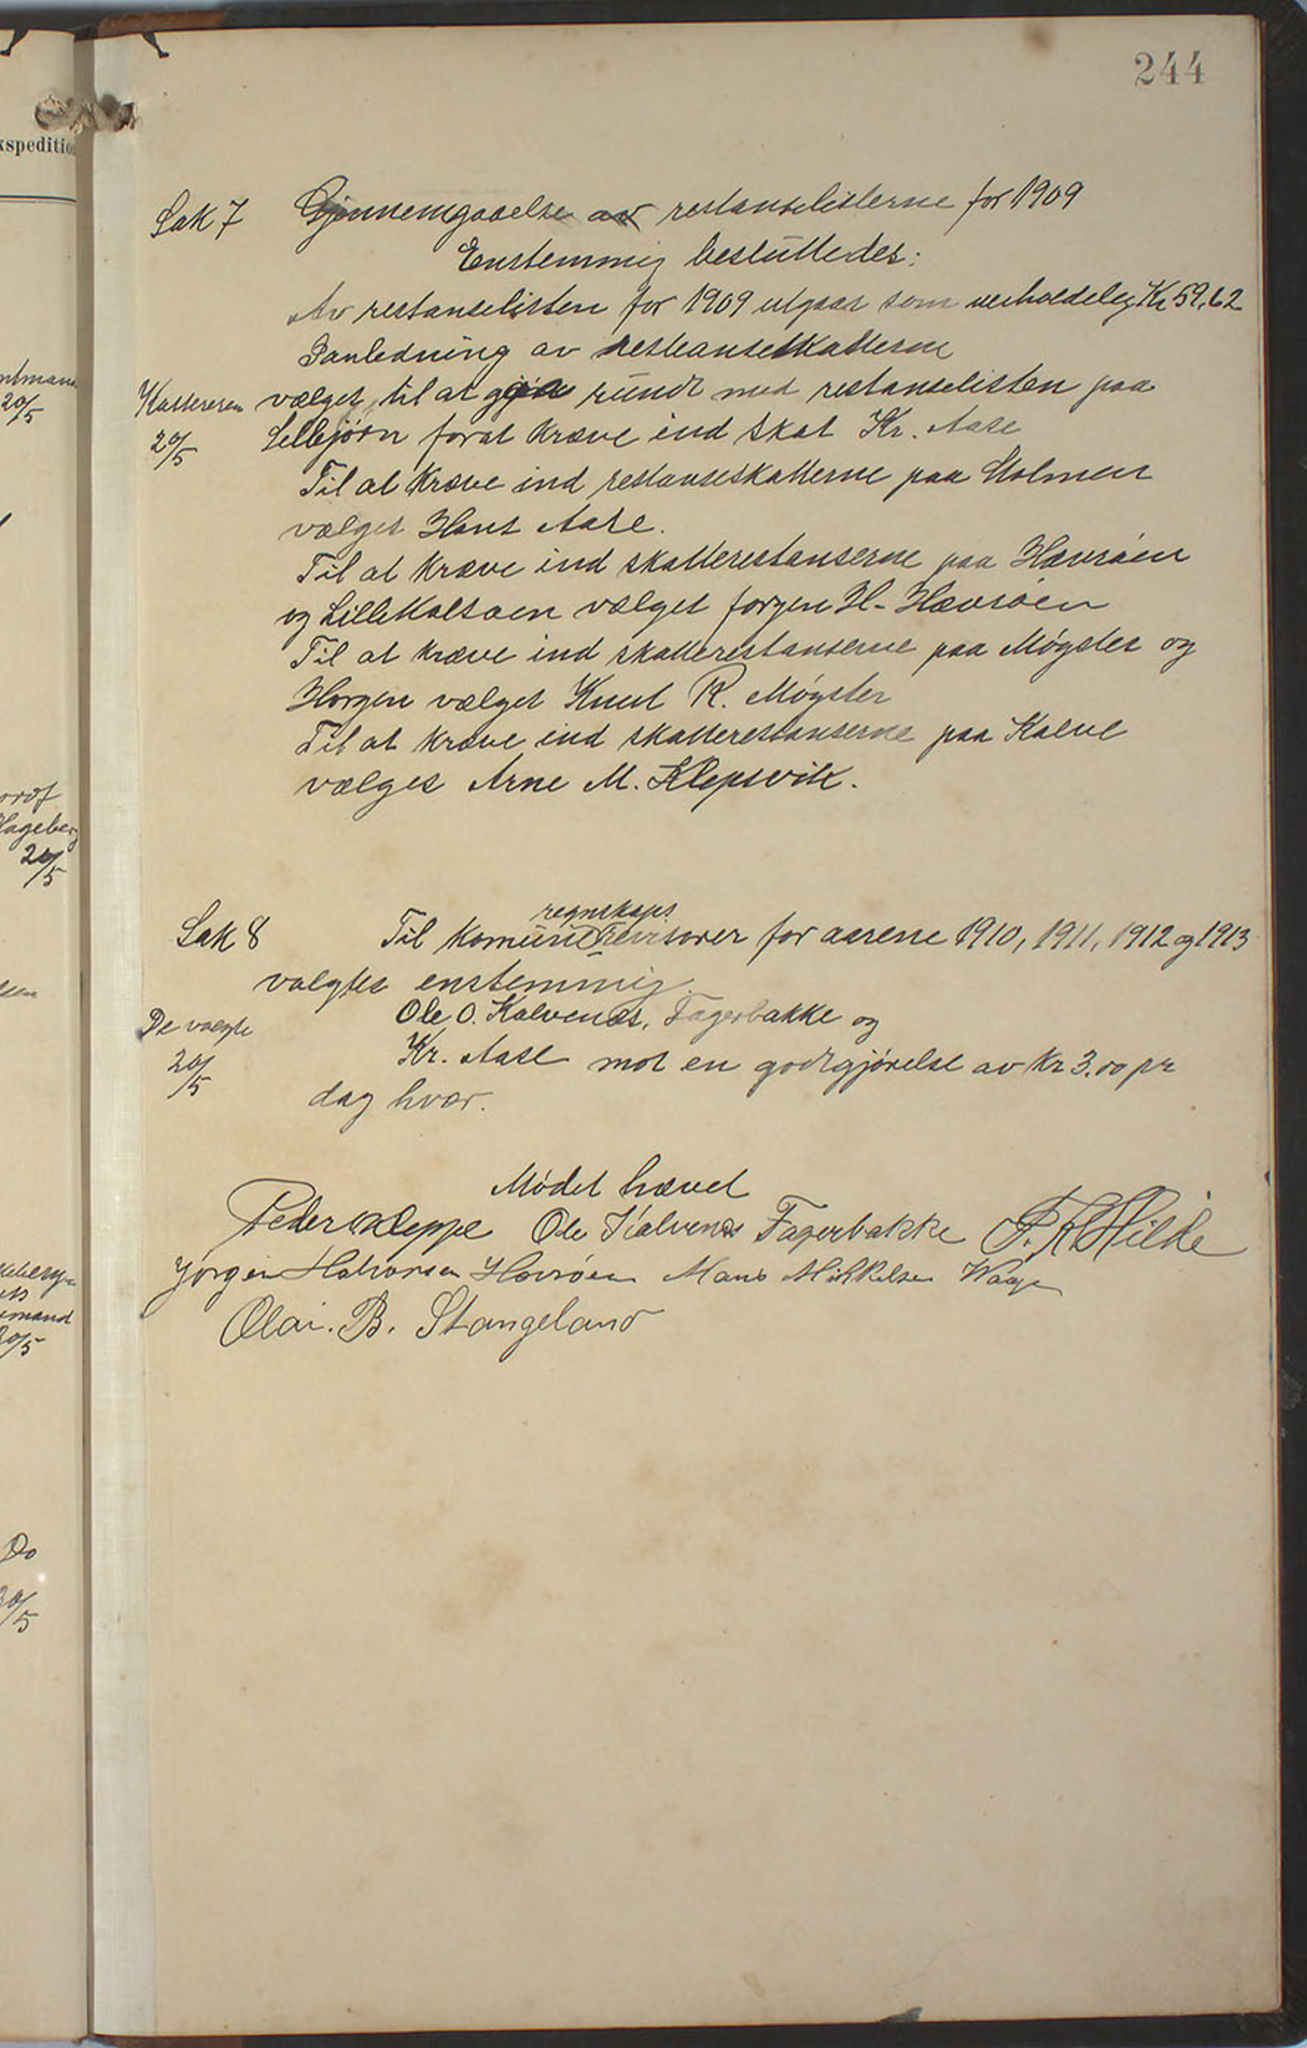 244
kspeditio
Sak 7 Gjennemgaaelse av restanselisterne for 1909
Enstemmig besluttedes:
Av restanselisten for 1909 utgaar som uerholdelig Kr 59,62
I anledning av restanseskatterne
Kassereren vælges til at gjøra rundt med restanselisten paa
20/5 Selbjørn forat kræve ind skat Kr. Aase
Til at kræve ind restanseskatterne paa Stolmen
vælges Hans Aase.
Til at kræve ind skatterestanserne paa Hævrøen
og Lillekalsøen vælges Jørgen H. Hævrøen
Til at kræve ind skatterestanserne paa Møgster og
Horgen vælges Knut R. Møgster
Til at kræve ind skatterestanserne paa Kalve
vælges Arne M. Klepsvik.
regnskaps
Sak 8 Til komunerevisorer for aarene 1910, 1911, 1912 og 1913
valgtes enstemmig.
De valgte Ole O. Kalvenæs, Fagerbakke og
20/5 Kr. Aase mot en godtgjørelse av kr 3.00 pr
dag hver.
Mødet hævet
Peder Kleppe Ole Kalvenæs Fagerbakke P. K. Hilke
Jørgen Halvorsen Hævrøen Mans Mikkelsen Waage
Olai. B. Stangeland